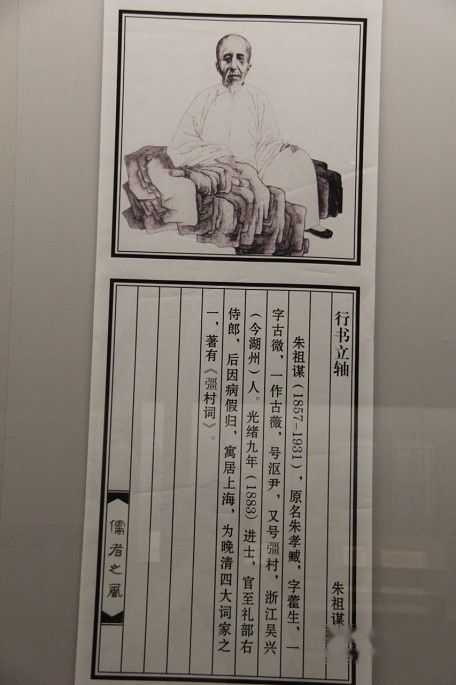 行书立轴 朱祖谋
朱祖谋（1857-1931），原名朱孝臧，字藿生，一
字古微，一作古薇，号沤尹，又号彊村，浙江吴兴
（今湖州）人。光绪九年（1883）进士，官至礼部右
侍郎，后因病假归，寓居上海，为晚清四大词家之
一，著有《彊村词》。
儒者之风